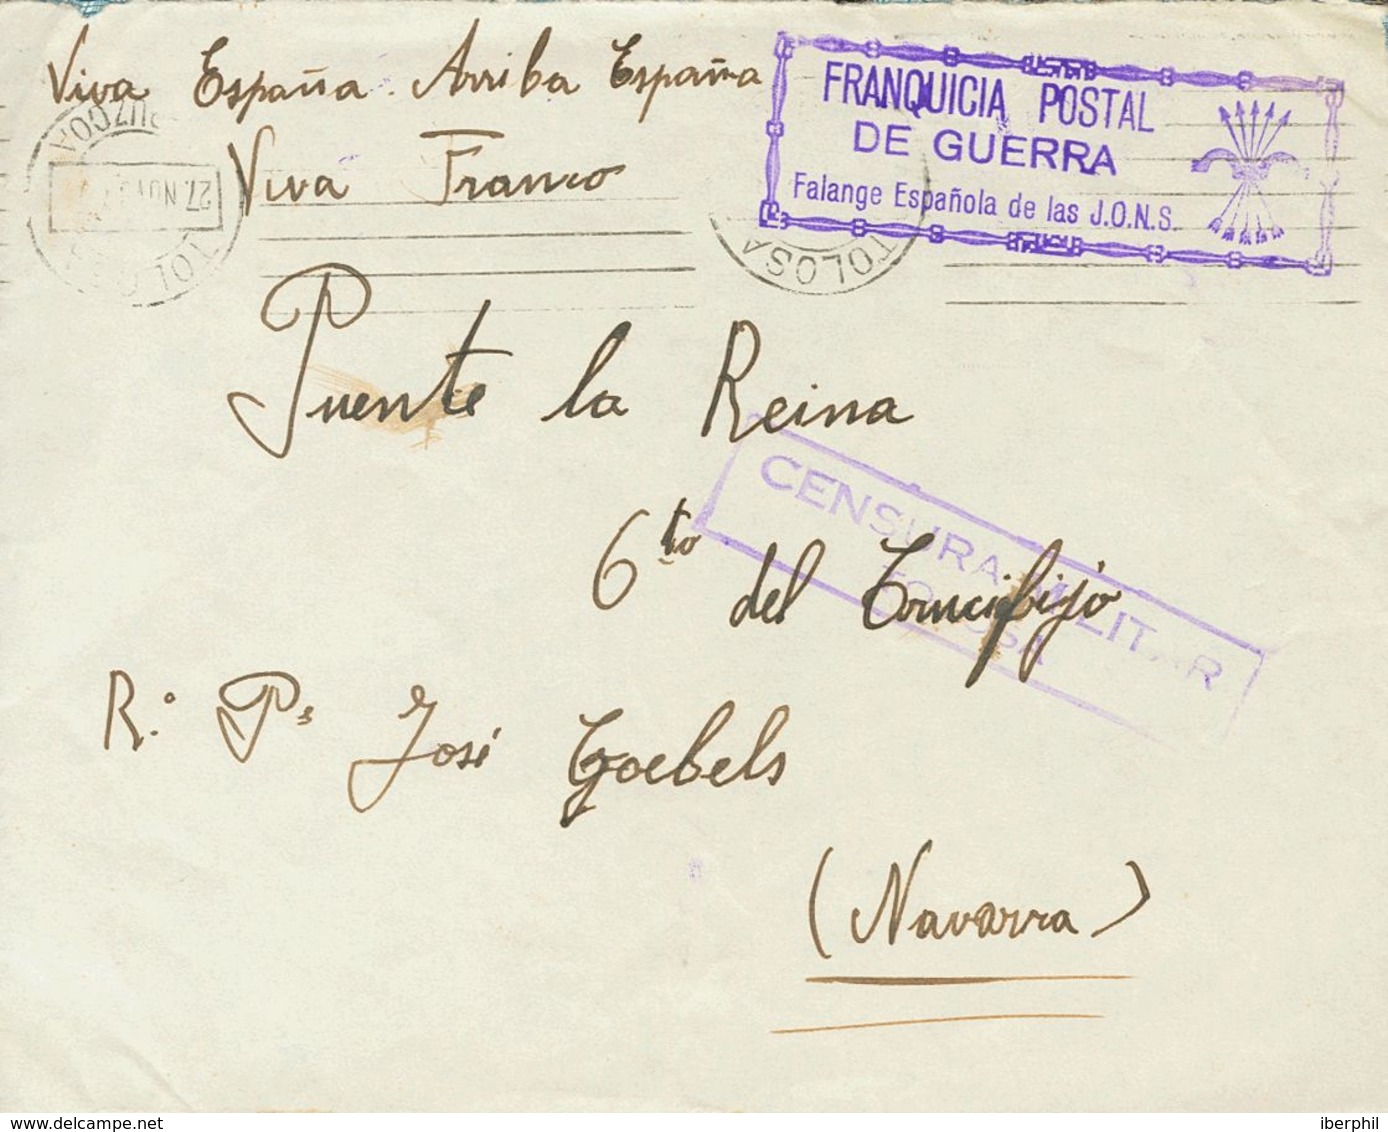 Viva España. Arriba España
Viva Franco
FRANQUICIA POSTAL
DE GUERRA
Falange Española de las J.O.N.S.
27. NOV
TOLOSA
Puente la Reina
CENSURA MILITAR
TOLOSA
6to del Crucifijo
R.º Ps José Goebels
(Navarra)
www.delcampe.net
iberphil